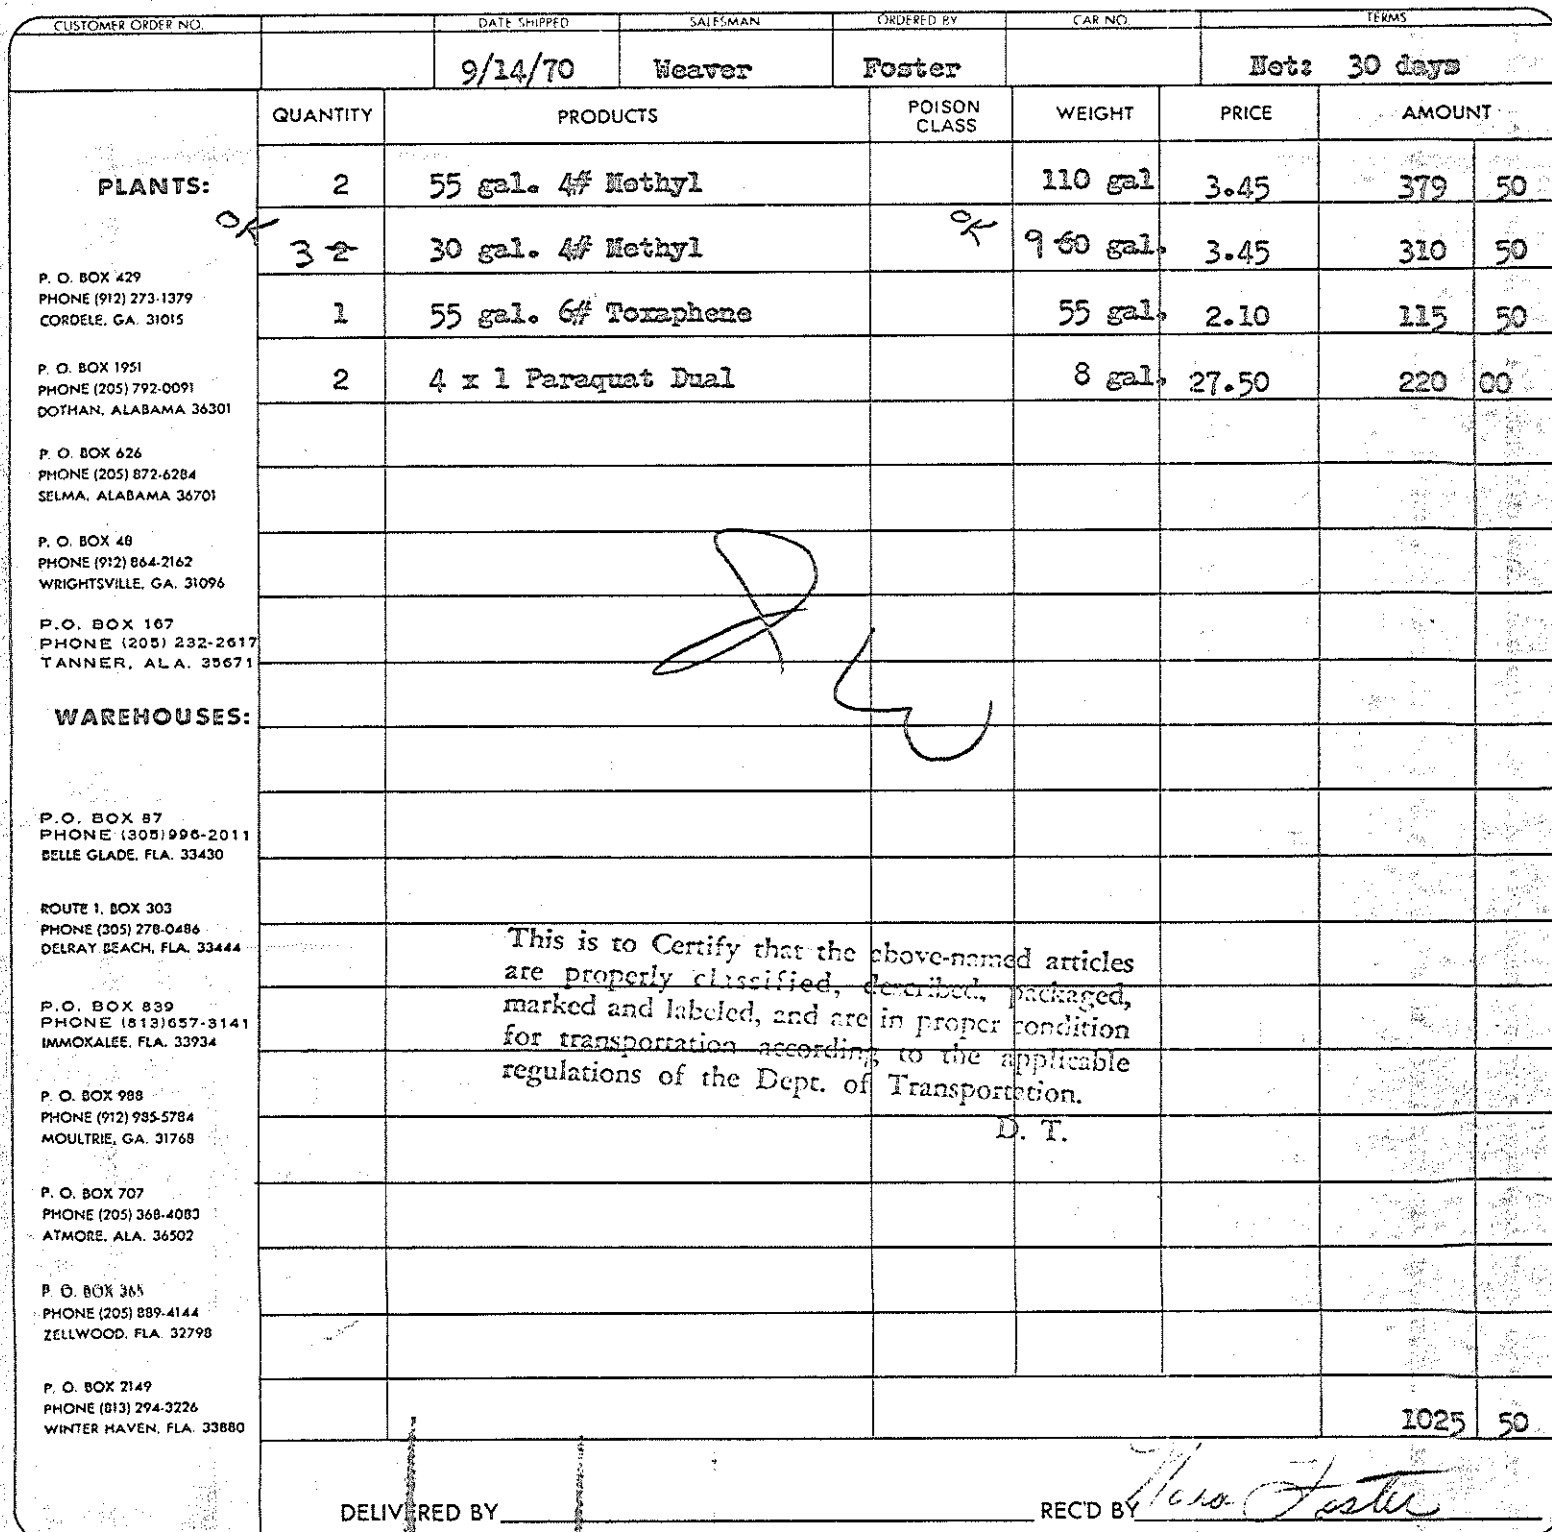 CUSTOMER ORDER NO. DATE SHIPPED SALESMAN ORDERED BY CAR NO. TERMS
9/14/70 Weaver Foster Net: 30 days
QUANTITY PRODUCTS POISON CLASS WEIGHT PRICE AMOUNT
PLANTS:
2 55 gal. 4# Methyl 110 gal 3.45 379 50
OK 3 2 30 gal. 4# Methyl OK 9 60 gal. 3.45 310 50
1 55 gal. 6# Toxaphene 55 gal. 2.10 115 50
2 4 x 1 Paraquat Dual 8 gal. 27.50 220 00
P. O. BOX 429
PHONE (912) 273-1379
CORDELE, GA. 31015
P. O. BOX 1951
PHONE (205) 792-0091
DOTHAN, ALABAMA 36301
P. O. BOX 626
PHONE (205) 872-6284
SELMA, ALABAMA 36701
P. O. BOX 48
PHONE (912) 864-2162
WRIGHTSVILLE, GA. 31096
P.O. BOX 167
PHONE (205) 232-2617
TANNER, ALA. 35671
WAREHOUSES:
P.O. BOX 87
PHONE (305) 996-2011
BELLE GLADE, FLA. 33430
ROUTE 1, BOX 303
PHONE (305) 278-0486
DELRAY BEACH, FLA. 33444
P.O. BOX 839
PHONE (813) 657-3141
IMMOKALEE, FLA. 33934
P. O. BOX 988
PHONE (912) 985-5784
MOULTRIE, GA. 31768
P. O. BOX 707
PHONE (205) 368-4083
ATMORE, ALA. 36502
P. O. BOX 365
PHONE (205) 889-4144
ZELLWOOD, FLA. 32798
P. O. BOX 2149
PHONE (813) 294-3226
WINTER HAVEN, FLA. 33880
This is to Certify that the above-named articles
are properly classified, described, packaged,
marked and labeled, and are in proper condition
for transportation according to the applicable
regulations of the Dept. of Transportation.
D. T.
1025 50
DELIVERED BY REC'D BY Foster